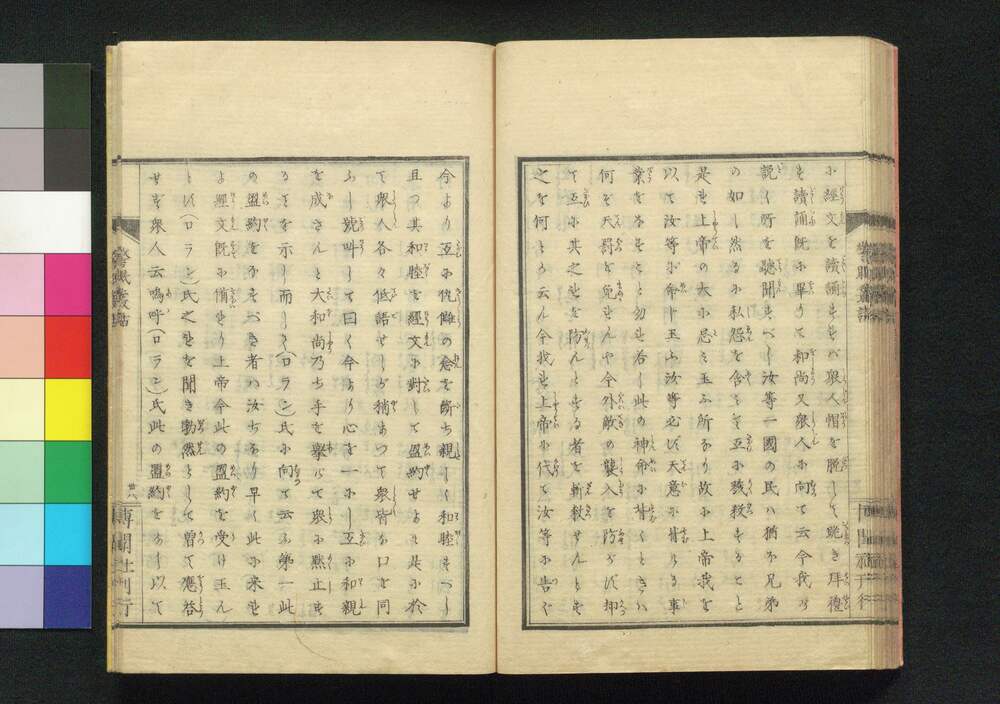 小經文を讀誦せしめバ衆人帽を脱して跪き拜禮
し讀誦既に畢りて和尚又衆人に向て云今我が
説く所を聽聞すべし汝等一國の民ハ猶ほ兄弟
の如し然るに私怨を含ミて互に殘殺することハ
是れ上帝の大に忌ミ玉ふ所なり故に上帝我を
以て汝等に命ト玉ふ汝等必ず天意に背ける事
業をなすこと勿れ若し此の神命に背くときハ
何ぞ天罰を免れんや今外敵の襲入を防がず却
て互に其之れを防んとする者を斬殺せんとす
之を何とか云ん今我れ上帝に代て汝等に告ぐ
今より互に仇讎の念を断ち親しく和睦すべし
且つ其和睦を經文に對して盟約せよと是に於
て衆人各々低語せしが稍あつて衆皆な口を同
ふし號叫して曰く今より心を一にし互に和親
を成さんと大和尚乃ち手を擧げて衆に黙止す
ることを示し而して(ロラン)氏に向て云ふ第一此
の盟約をなすべき者ハ汝ぢなり早く此に来れ
よ經文既に備れり上帝今此の盟約を受け玉ん
と(ロラン)氏之れを聞き勃然として曽て應答
せず衆人云嗚呼(ロラン)氏此の盟約をなし以て
廿八